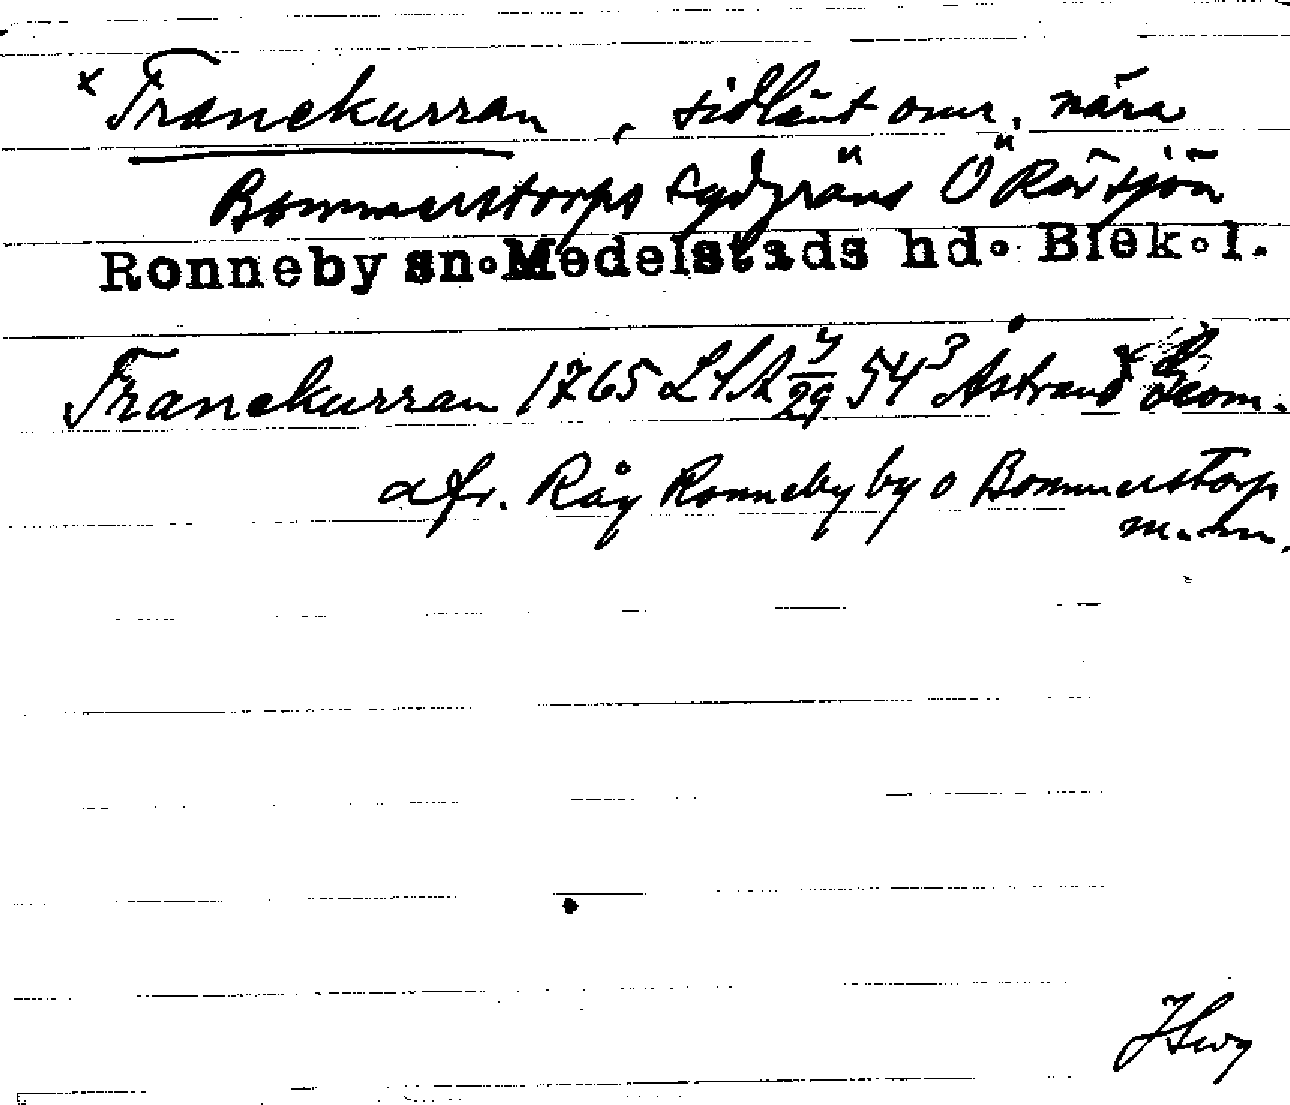 x Tranekurran, sidlänt omr. nära
Bommerstorps sydgräns Ö Rörsjön
Ronneby sn. Medelstads hd. Blek. l.
Tranekurran 1765 LSA 29 54³ Åstrand Geom.
afr. Råg Ronneby by o Bommerstorp
m. m.